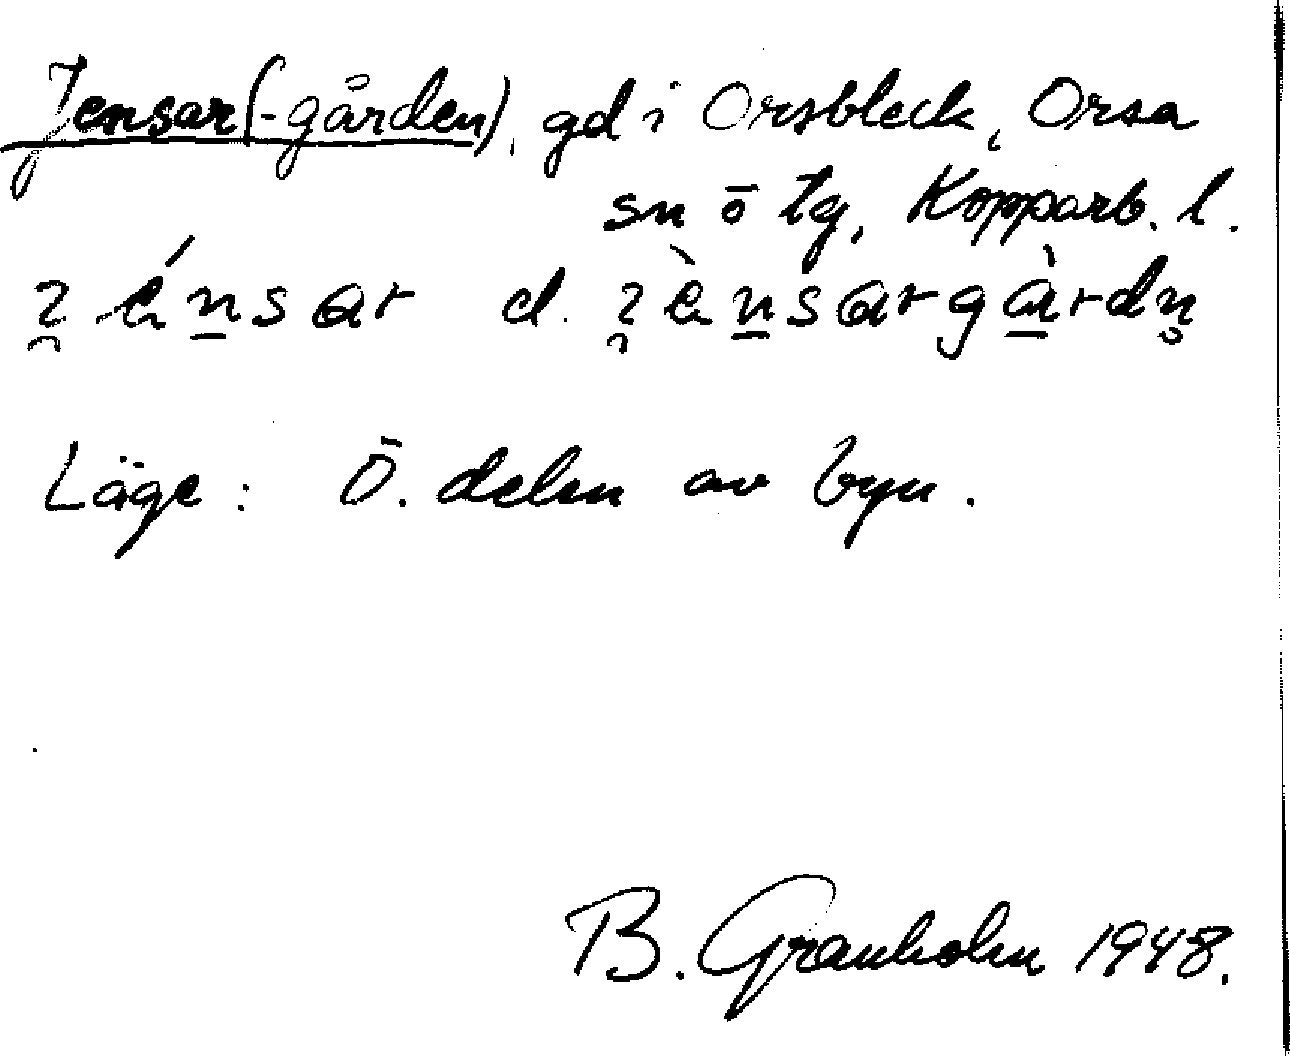 Jensar(-gården), gd i Orsbleck, Orsa
sn o tg, Kopparb. l.
énsar d. ènsargàrdn
Läge: Ö. delen av byn.
B. Granholm 1948.